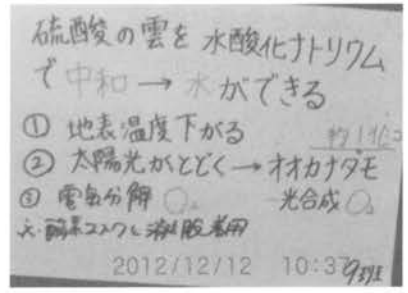 硫酸の雲を 水酸化ナトリウム
で 中和 → 水 ができる
① 地表温度下がる
② 太陽光がとどく → オオカナダモ
③ 電気分解 O₂ 光合成 O₂
酸素マスクと 着用
2012/12/12 10:37 9班